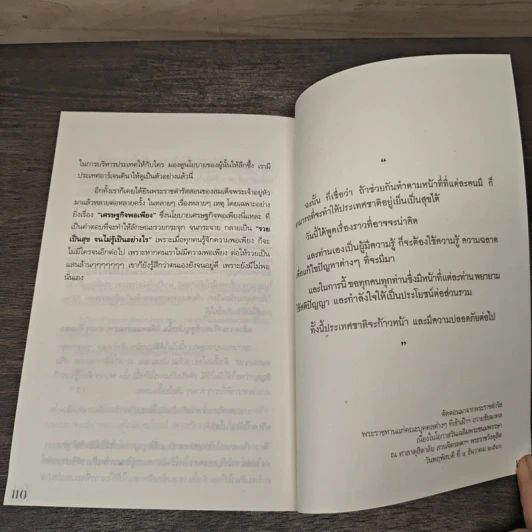 ในการบริหารประเทศให้กับใคร มองดูนโยบายของผู้นั้นให้ลึกซึ้ง เรามี
ประเทศอาร์เจนตินาให้ดูเป็นตัวอย่างแล้วนี่
อีกทั้งเราก็เคยได้ยินพระราชดำรัสสอนของสมเด็จพระเจ้าอยู่หัว
มาแล้วหลายต่อหลายครั้ง ในหลายๆ เรื่องหลายๆ เหตุ โดยเฉพาะอย่าง
ยิ่งเรื่อง "เศรษฐกิจพอเพียง" ซึ่งนโยบายเศรษฐกิจพอเพียงนี่แหละ ที่
เป็นคำตอบที่จะทำให้ลักษณะรวยกระจุก จนกระจาย กลายเป็น "รวย
เป็นสุข จนไม่รู้เป็นอย่างไร" เพราะเมื่อทุกคนรู้จักความพอเพียง ก็จะ
ไม่มีใครจนอีกต่อไป เพราะหากคนเราไม่มีความพอเพียง ต่อให้รวยเป็น
แสนล้านๆๆๆๆๆๆๆ เขาก็ยังรู้สึกว่าตนเองยังจนอยู่ดี เพราะยังมีไม่พอ
นั่นเอง
110
"
ฉะนั้น ก็เชื่อว่า ถ้าช่วยกันทำตามหน้าที่ที่แต่ละคนมี ก็
สามารถที่จะทำให้ประเทศชาติอยู่เย็นเป็นสุขได้
วันนี้ได้พูดเรื่องราวที่อาจจะน่าคิด
และท่านเองเป็นผู้มีความรู้ ก็จะต้องใช้ความรู้ ความฉลาด
เพื่อแก้ไขปัญหาต่างๆ ที่จะมีมา
และในการนี้ ขอทุกคนทุกท่านซึ่งมีหน้าที่แต่ละท่านพยายาม
ใช้สติปัญญา และกำลังใจให้เป็นประโยชน์ต่อส่วนรวม
ทั้งนี้ประเทศชาติจะก้าวหน้า และมีความปลอดภัยต่อไป
"
ตัดตอนมาจากพระราชดำรัส
พระราชทานแก่คณะบุคคลต่างๆ ที่เข้าเฝ้าฯ ถวายชัยมงคล
เนื่องในโอกาสวันเฉลิมพระชนมพรรษา
ณ ศาลาดุสิดาลัย สวนจิตรลดาฯ พระราชวังดุสิต
วันพฤหัสบดี ที่ ๔ ธันวาคม